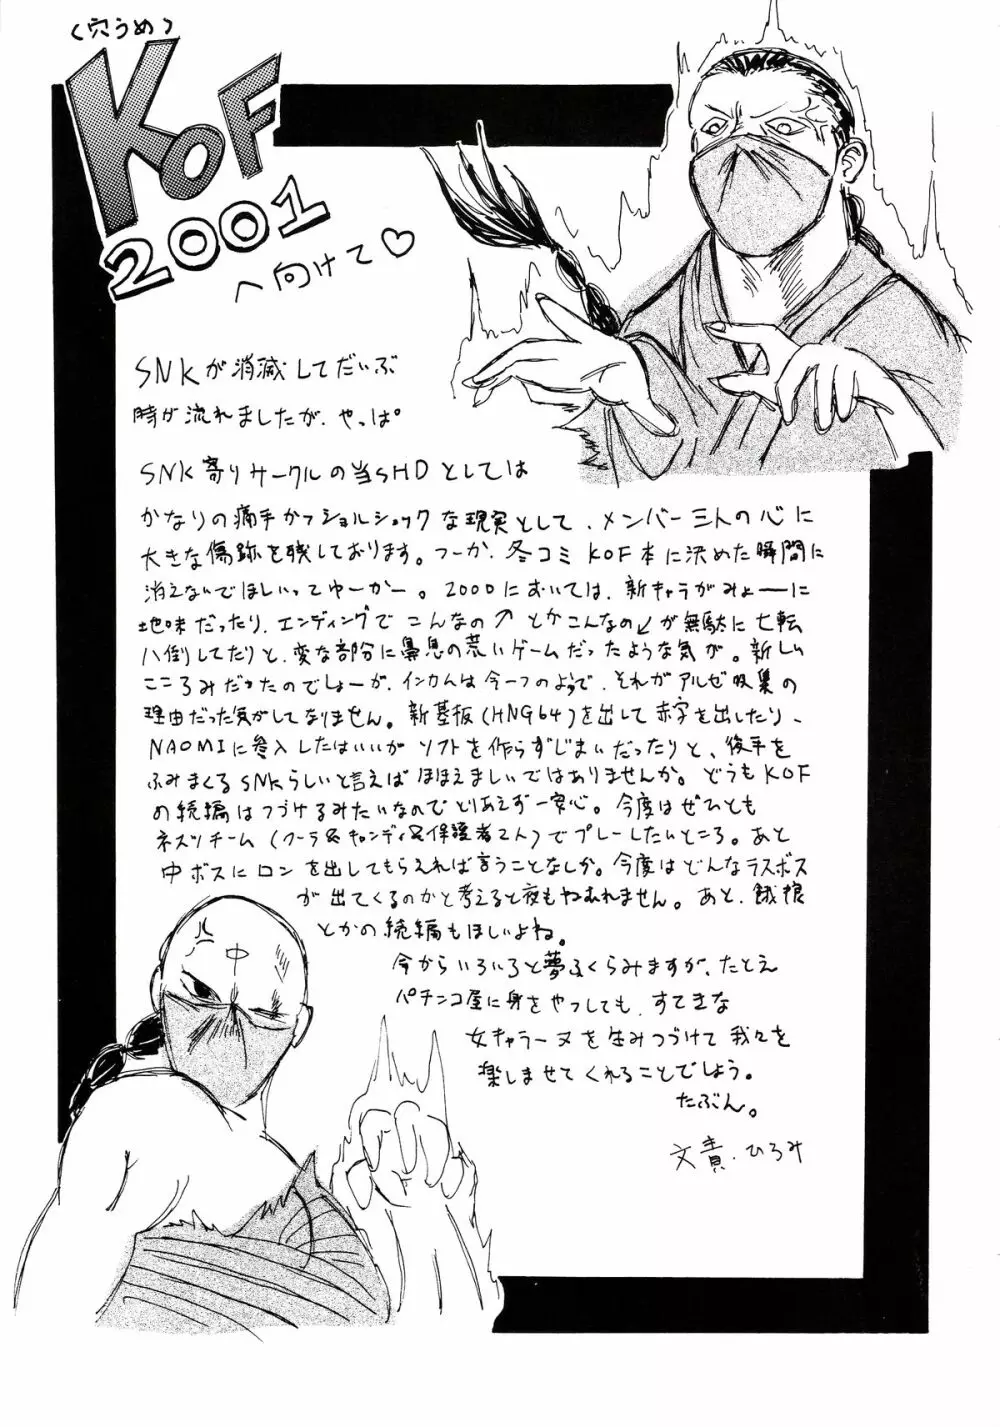 (穴うめ)
KOF
2001
へ向けて♡
SNKが消滅してだいぶ
時が流れましたが、やっぱ
SNK寄りサークルの当SHDとしては
かなりの痛手かつショルショックな現実として、メンバー三人の心に
大きな傷跡を残しております。つーか、冬コミKOF本に決めた瞬間に
消えないでほしいってゆーかー。2000においては、新キャラがみょーーに
地味だったり、エンディングでこんなの↗とかこんなの↙が無駄に七転
八倒してたりと、変な部分に鼻息の荒いゲームだったような気が。新しい
こころみだったのでしょーが、インカムは今一つのようで、それがアルゼ吸集の
理由だった気がしてなりません。新基板(HNG64)を出して赤字を出したり、
NAOMIに参入したはいいがソフトを作らずじまいだったりと、後手を
ふみまくるSNKらしいと言えばほほえましいではありませんか。どうもKOF
の続編はつづけるみたいなのでとりあえず一安心。今度はぜひとも
ネスツチーム(クーラ&キャンディ&保護者2人)でプレーしたいところ。あと
中ボスにロンを出してもらえれば言うことなしか。今度はどんなラスボス
が出てくるのかと考えると夜もねむれません。あと、餓狼
とかの続編もほしいよね。
今からいろいろと夢ふくらみますが、たとえ
パチンコ屋に身をやつしても、すてきな
女キャラーヌを生みつづけて我々を
楽しませてくれることでしょう。
たぶん。
文責・ひろみ
中